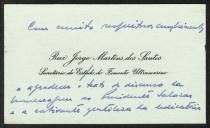 Com muito respeitosos cumprimentos
Rui Jorge Martins dos Santos
Secretário de Estado do Fomento Ultramarino
e agradece o texto do discurso da
ao Presidente Salazar
e a cativante gentileza da dedicatória